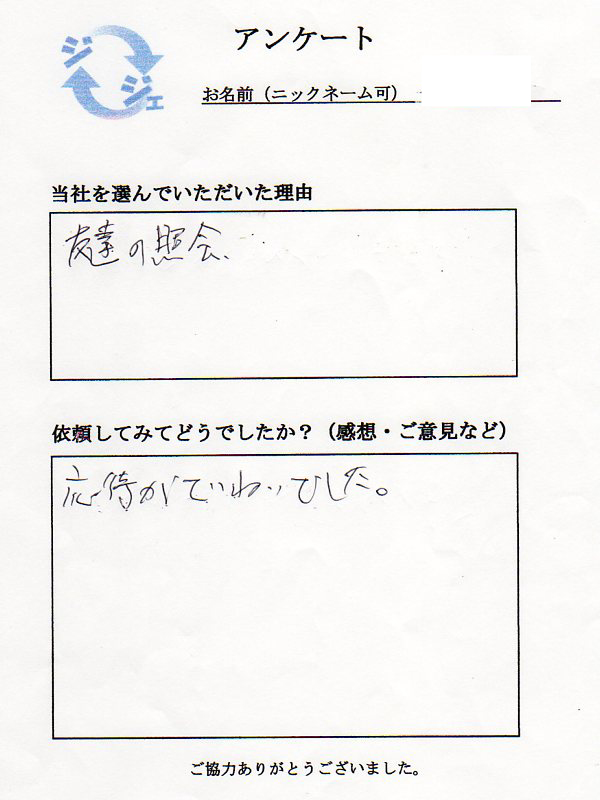 ジジェ
アンケート
お名前（ニックネーム可）
当社を選んでいただいた理由
友達の照会、
依頼してみてどうでしたか？（感想・ご意見など）
応待がていねいでした。
ご協力ありがとうございました。